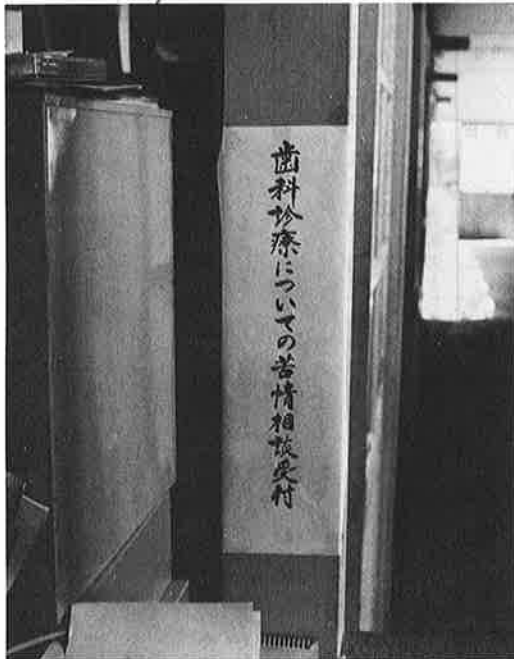 歯科診療についての苦情相談受付